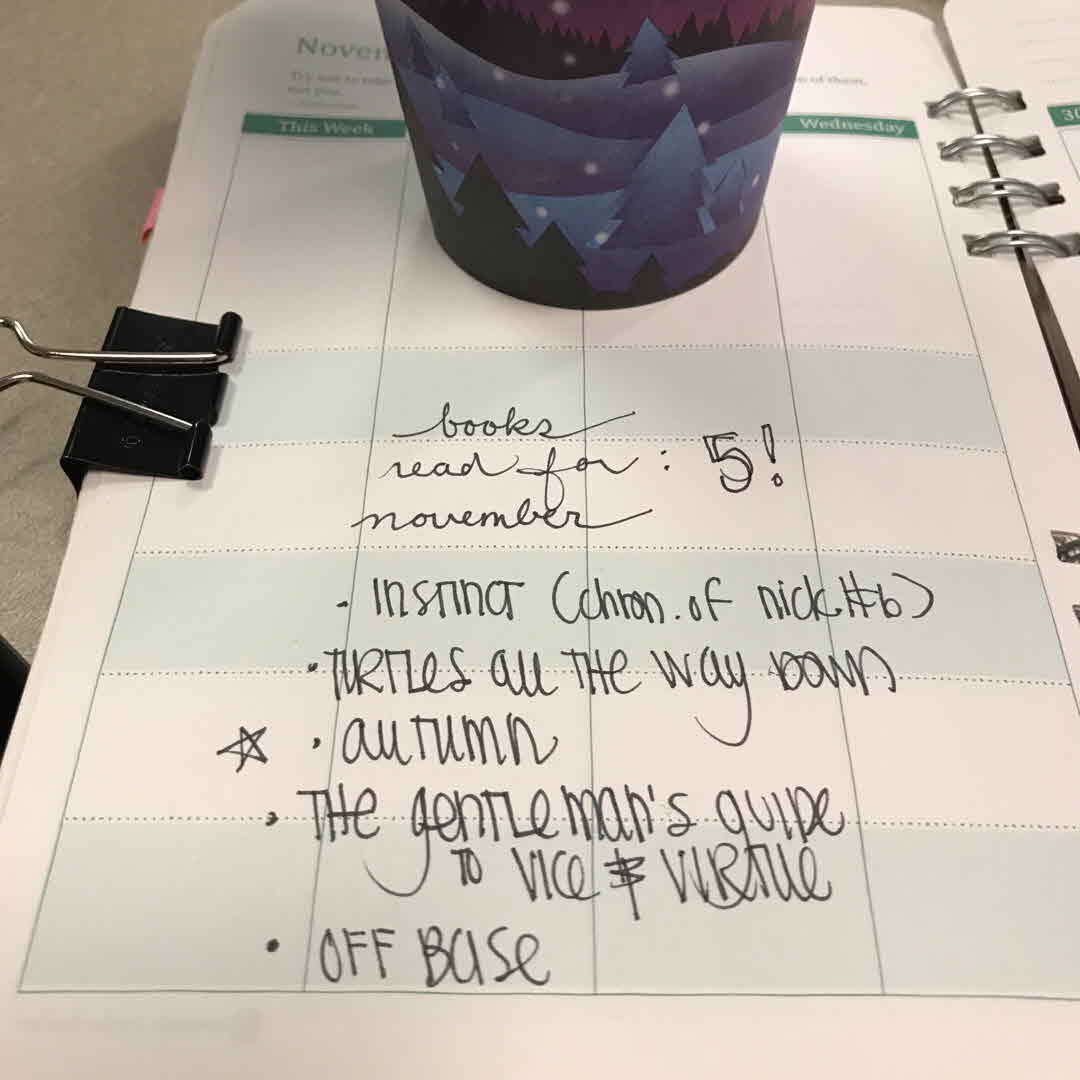 Novem
Try not to
of them,
not you.
This Week
Wednesday
30
books
read for : 5!
november
· INSTINCT (chron. of nick #6)
· TURTLES all THE way DOWN
☆ · autumn
· THE gentleman's guide
TO VICE & VIRTUE
· OFF BASE